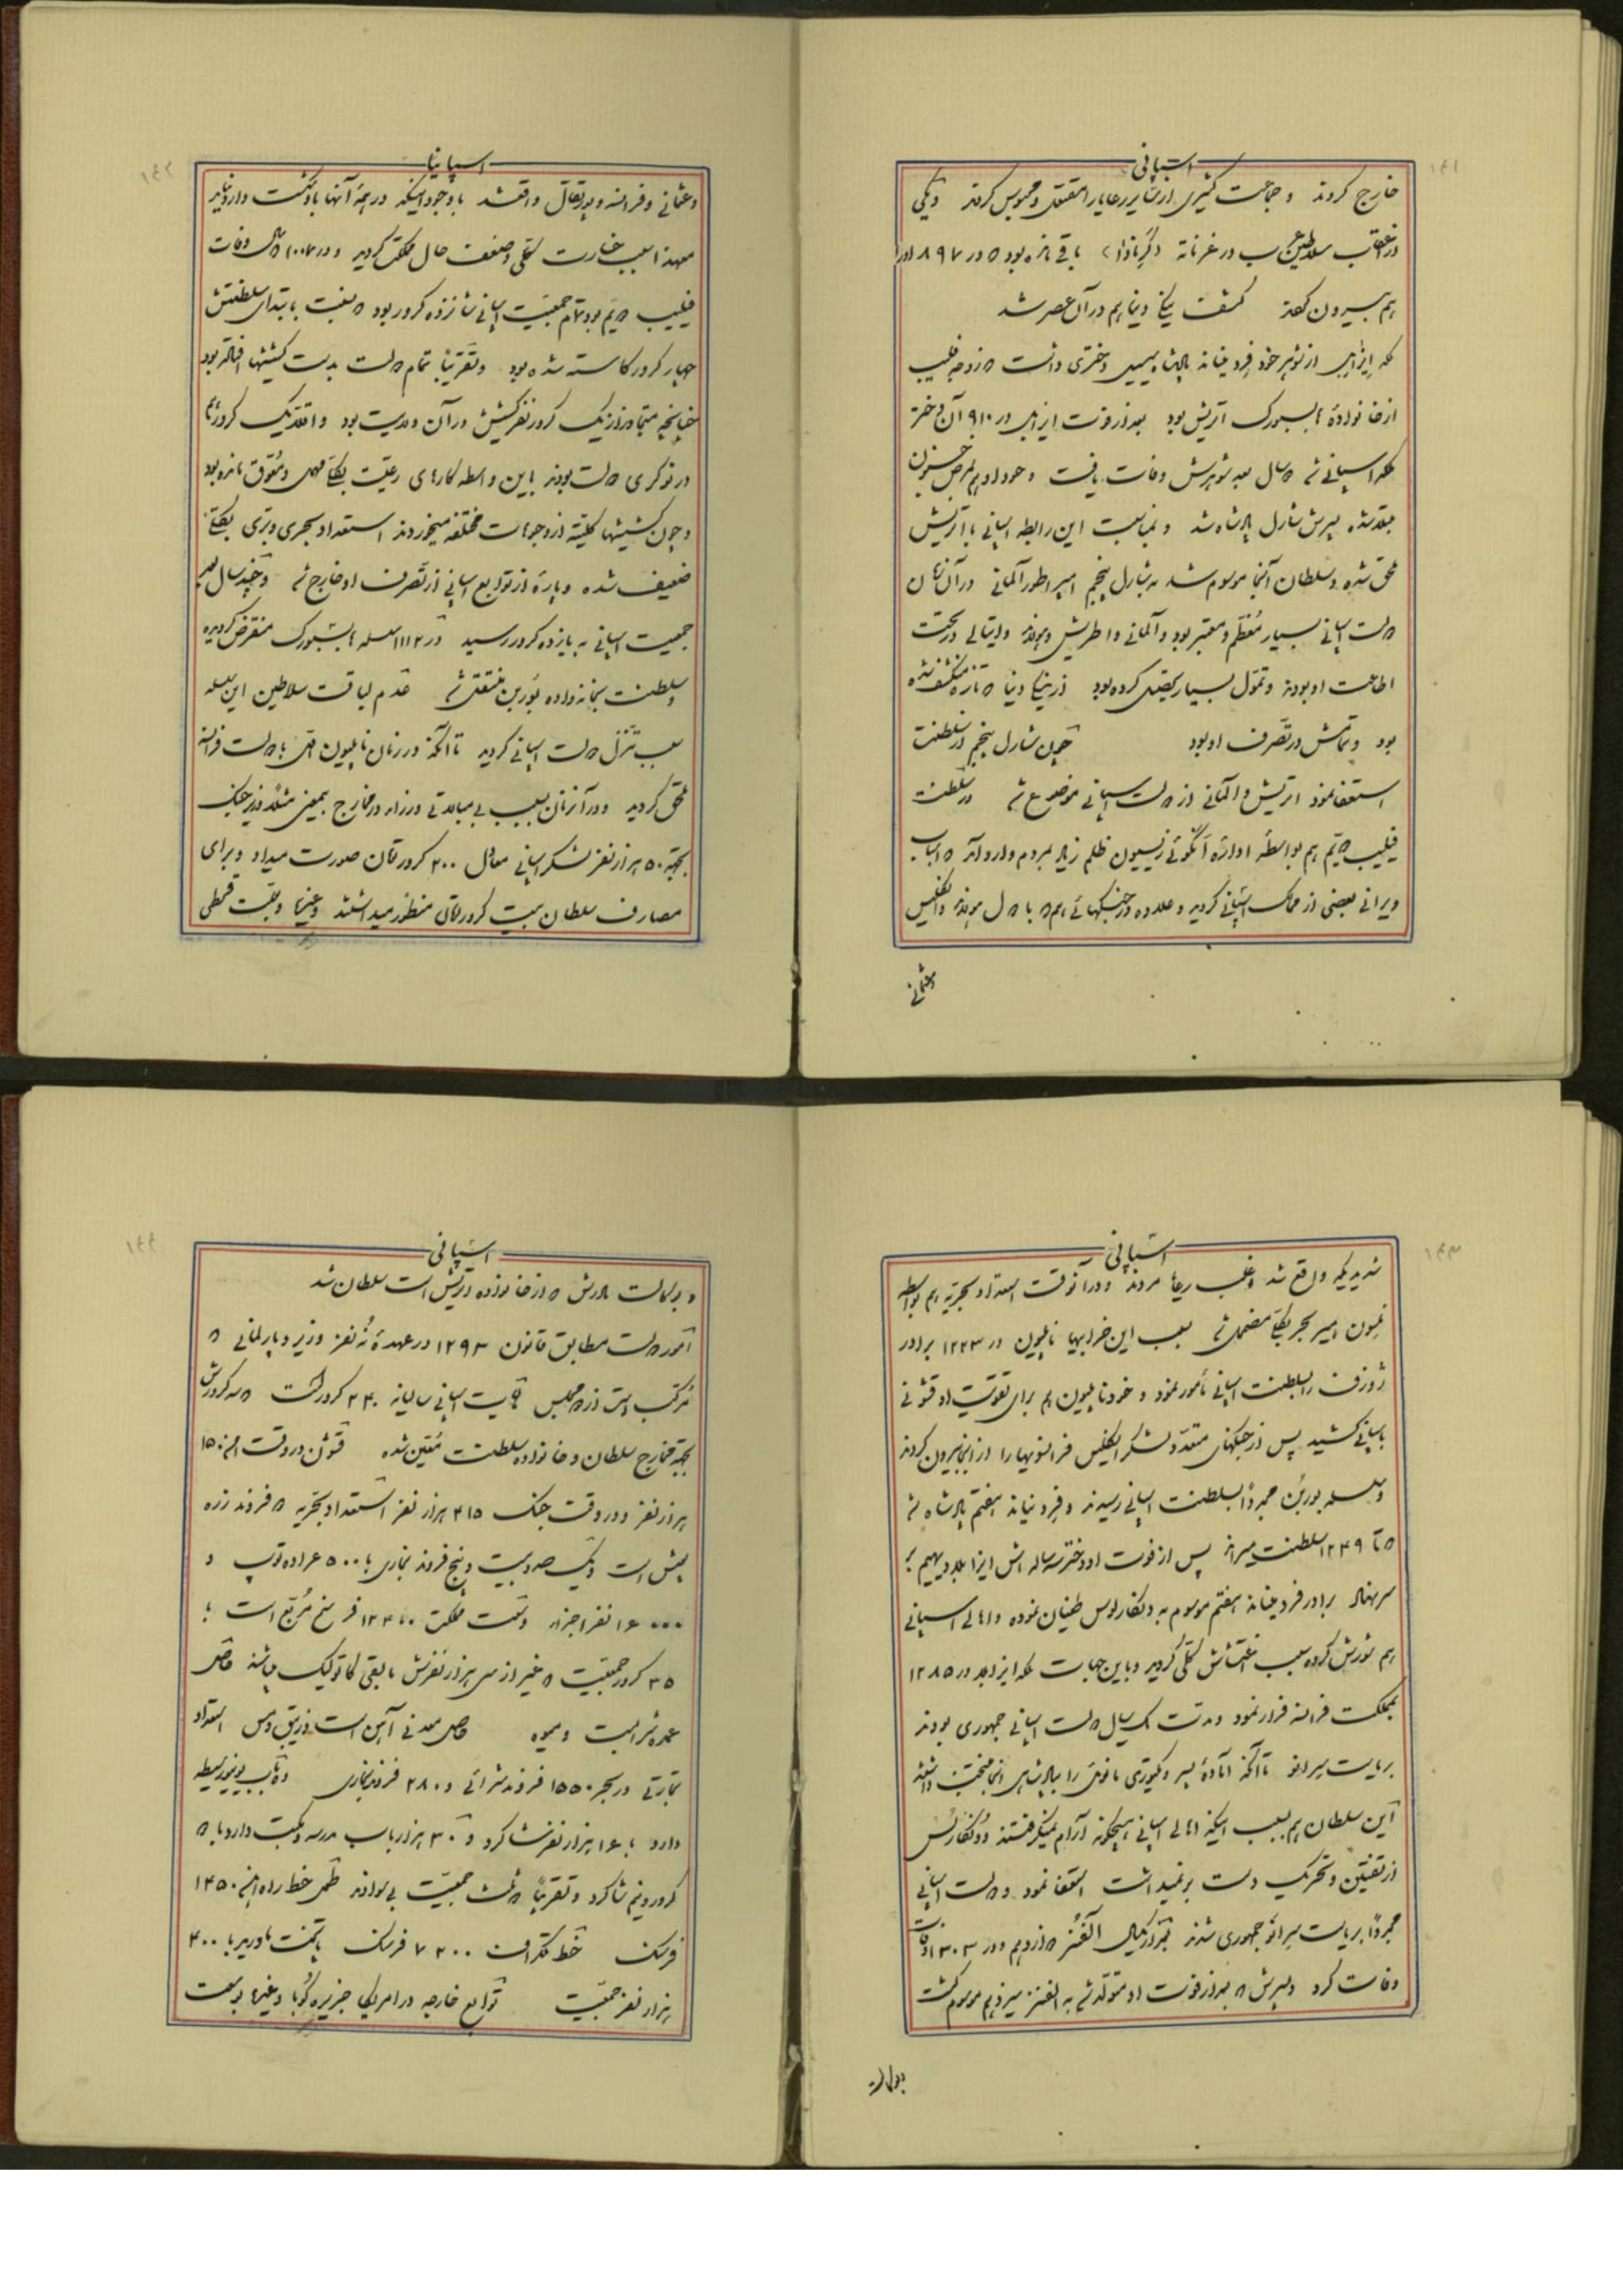 ۱۴۱
اسپانی
خارج کردند و جماعت کثیری از سایر رعایا را مقتول و محبوس کردند و یکی
از اعقاب سلاطین عرب در غرناطه (گرانادا) باقی مانده بود که در ۸۹۷ او را
هم بیرون کردند کشف ینگی دنیا هم در آن عصر شد
ملکه ایزابل از شوهر خود فردیناند پادشاه سیسیل دختری داشت که زوجه فیلیپ
از خانواده هابسبورک اتریش بود بعد از فوت ایزابل در ۹۱۰ آن دختر
ملکه اسپانی شد سال بعد شوهرش وفات یافت و خود او هم بمرض جنون
مبتلا شده پسرش شارل پادشاه شد و بمناسبت این رابطه اسپانی با اتریش
ملحق شده و سلطان آنجا موسوم شد به شارل پنجم امپراطور آلمانی در آن زمان
دولت اسپانی بسیار معظم و معتبر بود و آلمانی و اطریش و هولاند و ایتالی در تحت
اطاعت او بودند و تمول بسیار تحصیل کرده بود از ینگی دنیا که تازه منکشف شده
بود و تمامش در تصرف او بود چون شارل پنجم از سلطنت
استعفا نمود اتریش و آلمانی از دولت اسپانی موضوع شد در سلطنت
فیلیپ دویم هم بواسطه اداره انکویزیسیون ظلم زیاد بمردم وارد آمد که اسباب
ویرانی بعضی از ممالک اسپانی گردید و علاوه در جنگهائی هم که با دول هولاند و انگلیس
وعثمانی
۱۴۲
اسپانیا
وعثمانی و فرانسه و پورتقال واقع شد با وجود اینکه در همه آنها با شکست وارد نیامد
معهذا سبب خسارت کلی و ضعف حال مملکت گردید و در ۱۰۰۷ که سال وفات
فیلیپ دویم بود تمام جمعیت اسپانی شانزده کرور بود که نسبت به ابتدای سلطنتش
چهار کرور کاسته شده بود و تقریبا تمام دولت بدست کشیشها افتاده بود
چنانچه متجاوز از یک کرور نفر کشیش در آن ولایت بود و اقلا یک کرور هم
در نوکری دولت بودند باین واسطه کارهای رعیت بکلی مهمل و معوق مانده بود
و چون کشیشها کلیه از وجوهات مختلفه میخوردند استعداد بحری و بری بکلی
ضعیف شده و پاره از توابع اسپانی از تصرف او خارج شد و چند سال بعد
جمعیت اسپانی به یازده کرور رسید در ۱۱۱۲ سلسله هابسبورک منقرض گردیده
و سلطنت بخانواده بوربن منتقل شد عدم لیاقت سلاطین این سلسله
سبب تنزل دولت اسپانی گردید تا آنکه در زمان ناپلیون اول با دولت فرانسه
ملحق گردید و در آنزمان بسبب بی مبالاتی وزراء در مخارج بیمعنی مثلا وزیر جنگ
بجهة ۵۰ هزار نفر لشکر اسپانی معادل ۲۰۰ کرور تومان صورت میداد و برای
مصارف سلطان بیست کرور تومان منظور میداشتند و غیرها و بعلت قحطی
۱۴۳
اسپانی
شدیدیکه واقع شد و اغلب رعایا مردند و در آنوقت استعداد بحریه هم بواسطه
نلسون امیر بحر بکلی مضمحل شد بسبب این خرابیها ناپلیون در ۱۲۲۳ برادر
ژوزف را بسلطنت اسپانی مأمور نمود و خود ناپلیون هم برای تقویت او قشونی
باسپانی کشید پس از جنگهای متعدد لشکر انگلیس فرانسویها را از آنجا بیرون کردند
و سلسله بوربن مجددا بسلطنت اسپانی رسیدند و فردیناند هفتم پادشاه شد
که تا ۱۲۴۹ سلطنت میراند پس از فوت او دختر سه ساله اش ایزابلا دویم بر
سر نهاد برادر فردیناند هفتم موسوم به دنکارلوس طغیان نموده و اهالی اسپانی
هم شورش کرده سبب اغتشاش کلی گردید و باین جهات ملکه ایزابلا در ۱۲۸۵
بمملکت فرانسه فرار نمود و مدت یکسال دولت اسپانی جمهوری بودند
بریاست سرانو تا آنکه آماده پسر ویکتوری مانوئل را بپادشاهی انجا منتخب داشتند
این سلطان هم بسبب اینکه اهالی اسپانی هیچگونه آرام نمیگرفتند و دنکارلس
از تفتین و تحریک دست برنمیداشت استعفا نمود و دولت اسپانی
مجددا بریاست سرانو جمهوری شدند بعد از یکسال آلفنز دوازدهم و در ۱۳۰۳ او وفات
وفات کرد و پسرش که بعد از فوت او متولد شد به الفنز سیزدهم موسوم گشت
بوکالت
۱۴۴
اسپانی
و بوکالت مادرش که از خانواده اتریش است سلطان شد
امور دولت مطابق قانون ۱۲۹۳ در عهده نه نفر وزیر و پارلمانی که
مرکب است از دو مجلس مالیات اسپانی سالیانه ۲۴۰ کرور است که سه کرورش
بجهة مخارج سلطان و خانواده سلطنت معین شده قشون در وقت امن ۱۵۰
هزار نفر و در وقت جنگ ۴۱۵ هزار نفر استعداد بحریه ۵ فروند زره
پوش است و یکصد و بیست و پنج فروند بخاری با ۵۰۰ عراده توپ و
۱۶۰۰۰ نفر اجزاء وسعت مملکت ۱۲۴۰۰ فرسخ مربع است با
۳۵ کرور جمعیت که غیر از سی هزار نفرش مابقی کاتولیک میباشند حاصل
عمده شرابست و میوه حاصل معدنی آهن است و زیبق و مس استعداد
تجارتی در بحر ۱۵۵۰ فروند شراعی و ۲۸۰ فروند بخاری ده باب یونیورسیطه
دارد با ۱۶ هزار نفر شاگرد و ۳۰ هزار باب مدرسه و مکتب دارد با دو
کرور و نیم شاگرد و تقریبا دو ثلث جمعیت بی سوادند طول خط راه آهن ۱۴۵۰
فرسنگ خط تلگراف ۷۲۰۰ فرسنگ پایتخت مادرید با ۴۰۰
هزار نفر جمعیت توابع خارجه در امریکا جزیره کوبا و غیرها بوسعت